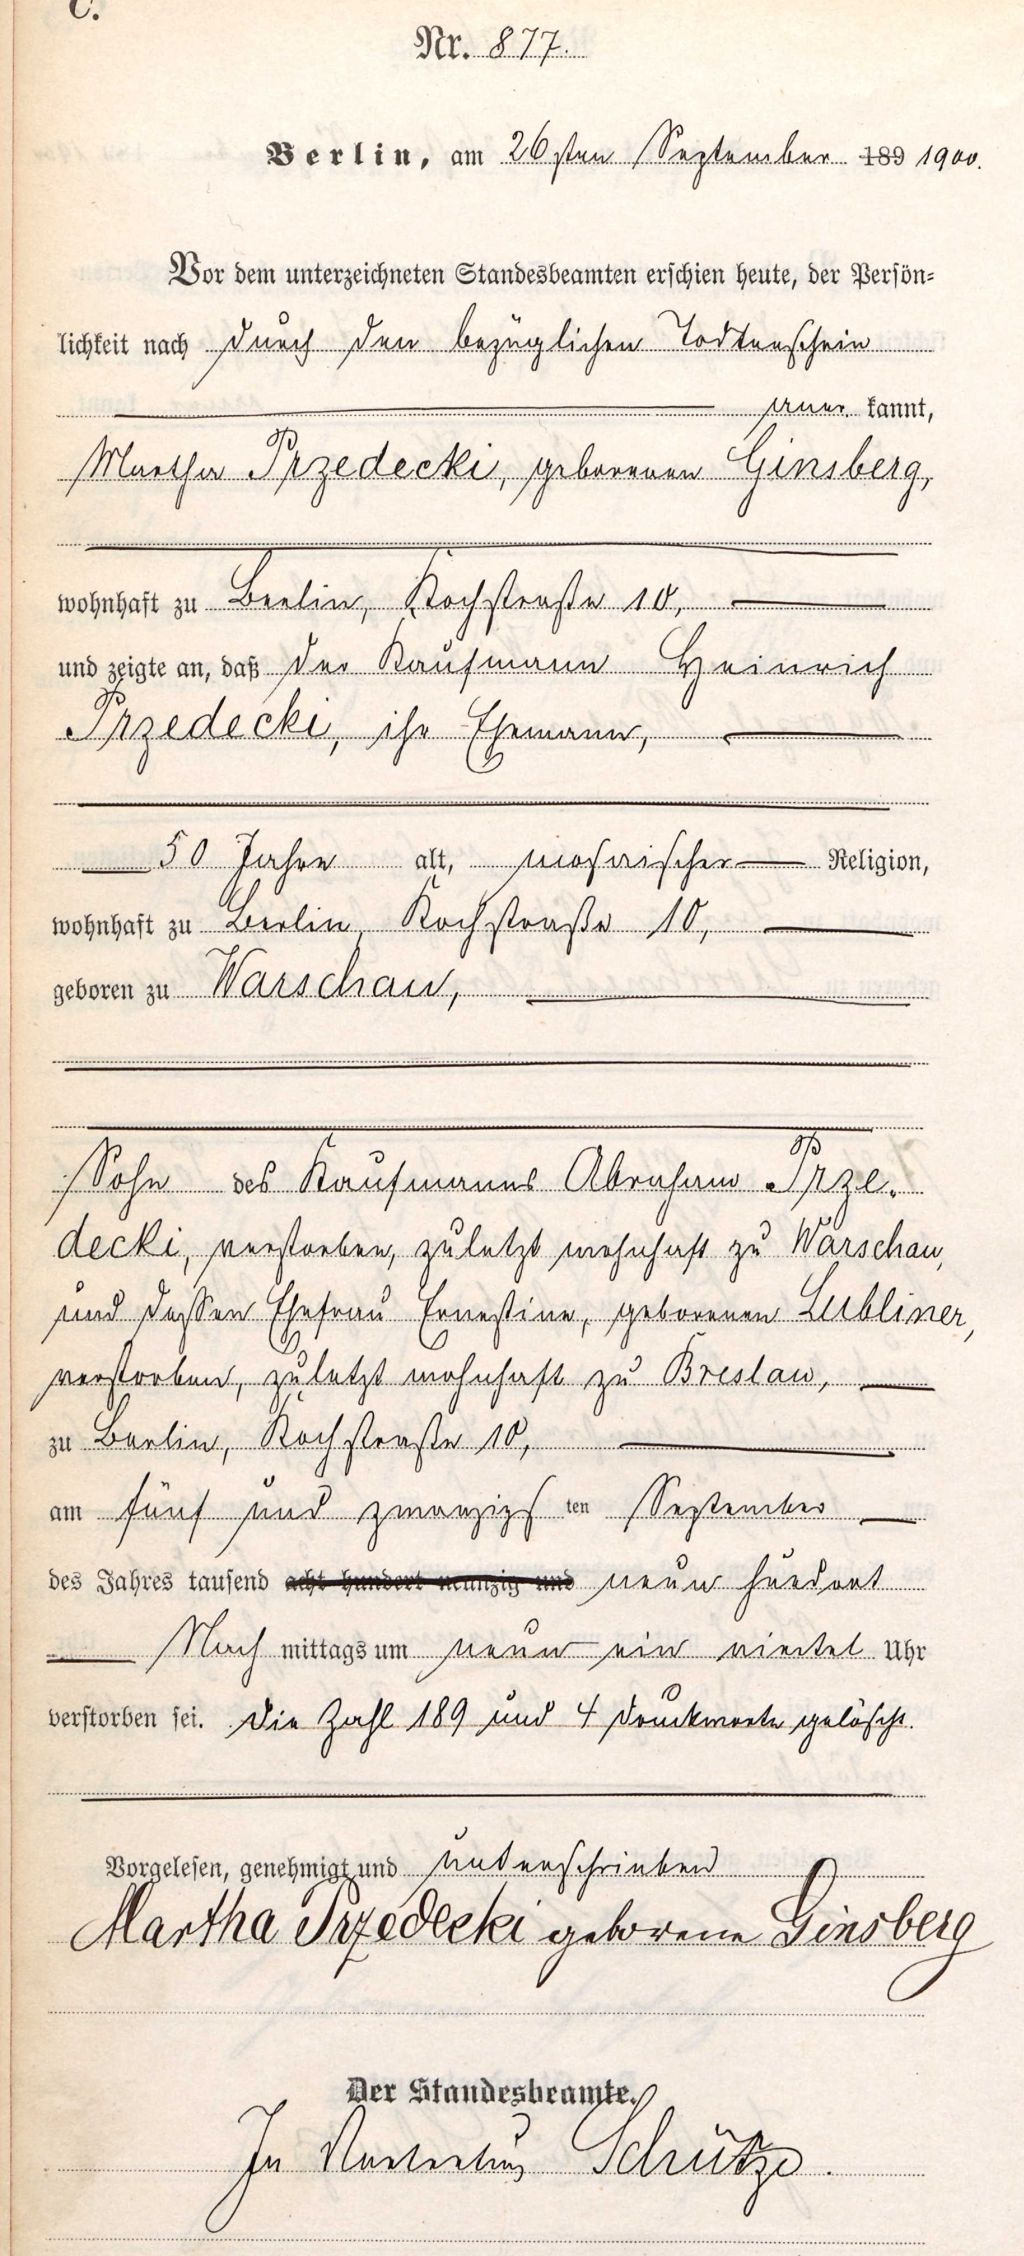 C.
Nr. 877.
Berlin, am 26sten September 189 1900.
Vor dem unterzeichneten Standesbeamten erschien heute, der Persön-
lichkeit nach durch den bezüglichen Todtenschein
aner kannt,
Martha Przedecki, geborenen Ginsberg,
wohnhaft zu Berlin, Kochstraße 10,
und zeigte an, daß der Kaufmann Heinrich
Przedecki, ihr Ehemann,
50 Jahre alt, mosaischer Religion,
wohnhaft zu Berlin, Kochstraße 10,
geboren zu Warschau,
Sohn des Kaufmanns Abraham Prze-
decki, verstorben, zuletzt wohnhaft zu Warschau,
und dessen Ehefrau Ernestine, geborenen Lubliner,
verstorben, zuletzt wohnhaft zu Breslau,
zu Berlin, Kochstraße 10,
am fünf und zwanzigs ten September
des Jahres tausend acht hundert neunzig und neun hundert
Nach mittags um neun ein viertel Uhr
verstorben sei. Die Zahl 189 und 4 Druckworte gelöscht.
Vorgelesen, genehmigt und unterschrieben
Martha Przedecki geborene Ginsberg
Der Standesbeamte.
In Vertretung Schütze.